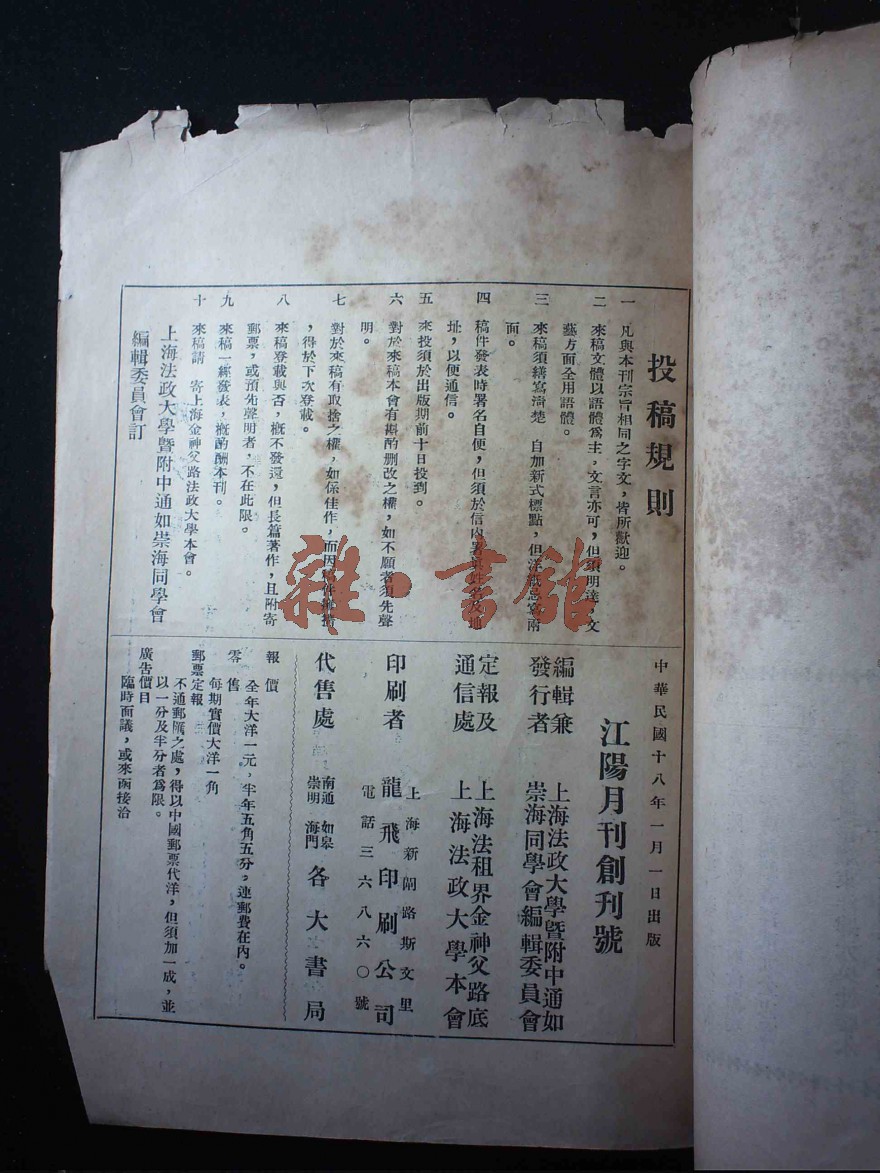 投稿規則
一　凡與本刊宗旨相同之字文，皆所歡迎。
二　來稿文體以語體為主，文言亦可，但須明達，文
藝方面全用語體。
三　來稿須繕寫清楚　自加新式標點，但洋紙忌寫兩
面。
四　稿件發表時署名自便，但須於信內署眞姓名及地
址，以便通信。
五　來投須於出版期前十日投到。
六　對於來稿本會有斟酌刪改之權，如不願者須先聲
明。
七　對於來稿有取捨之權，如係佳作，而因稿件擁擠
，得於下次登載。
八　來稿登載與否，概不發還，但長篇著作，且附寄
郵票，或預先聲明者，不在此限。
九　來稿一經發表，概酌酬本刊。
十　來稿請　寄上海金神父路法政大學本會。
上海法政大學暨附中通如崇海同學會
編輯委員會訂
中華民國十八年一月一日出版
江陽月刊創刊號
編輯兼
發行者
上海法政大學暨附中通如
崇海同學會編輯委員會
定報及
通信處
上海法租界金神父路底
上海法政大學本會
印刷者
上海新閘路斯文里
龍飛印刷公司
電話三六八六〇號
代售處
南通　如皋
崇明　海門
各大書局
報價
全年大洋一元，半年五角五分，連郵費在內。
零售
每期實價大洋一角
郵票定報
不通郵匯之處，得以中國郵票代洋，但須加一成，並
以一分及半分者為限。
廣告價目
臨時面議，或來函接洽
雜·書館